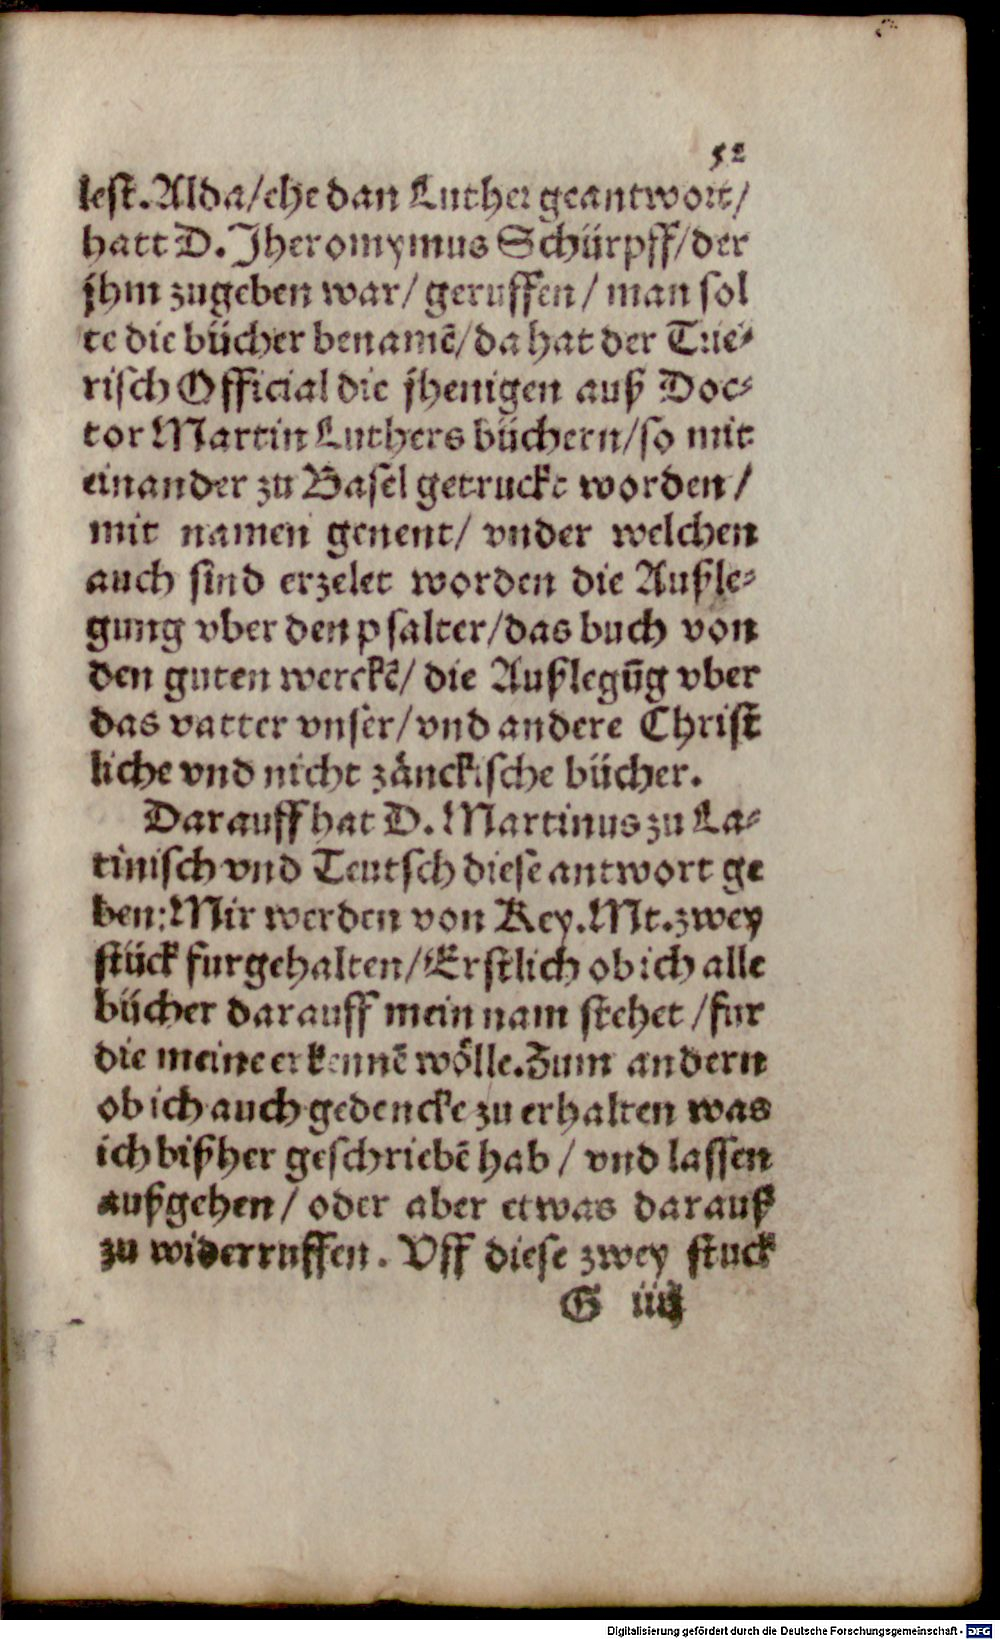 52
lest. Alda/ehe dan Luther geantwort/
hatt D. Jheronymus Schürpff/der
jhm zugeben war/ geruffen/ man sol
te die bücher benamē/da hat der Trie⸗
risch Official die jhenigen auß Doc⸗
tor Martin Luthers büchern/so mit
einander zu Basel getruckt worden/
mit namen genent/ vnder welchen
auch sind erzelet worden die Außle⸗
gung vber den psalter/das buch von
den guten werckē/ die Außlegūg vber
das vatter vnser/vnd andere Christ
liche vnd nicht zänckische bücher.
Darauff hat D. Martinus zu La⸗
tinisch vnd Teutsch diese antwort ge
ben: Mir werden von Key. Mt. zwey
stück furgehalten/Erstlich ob ich alle
bücher darauff mein nam stehet/fur
die meine erkennē wölle. Zum andern
ob ich auch gedencke zu erhalten was
ich bißher geschriebē hab/ vnd lassen
außgehen/ oder aber etwas darauß
zu widerruffen. Vff diese zwey stuck
G iiij
Digitalisierung gefördert durch die Deutsche Forschungsgemeinschaft - DFG